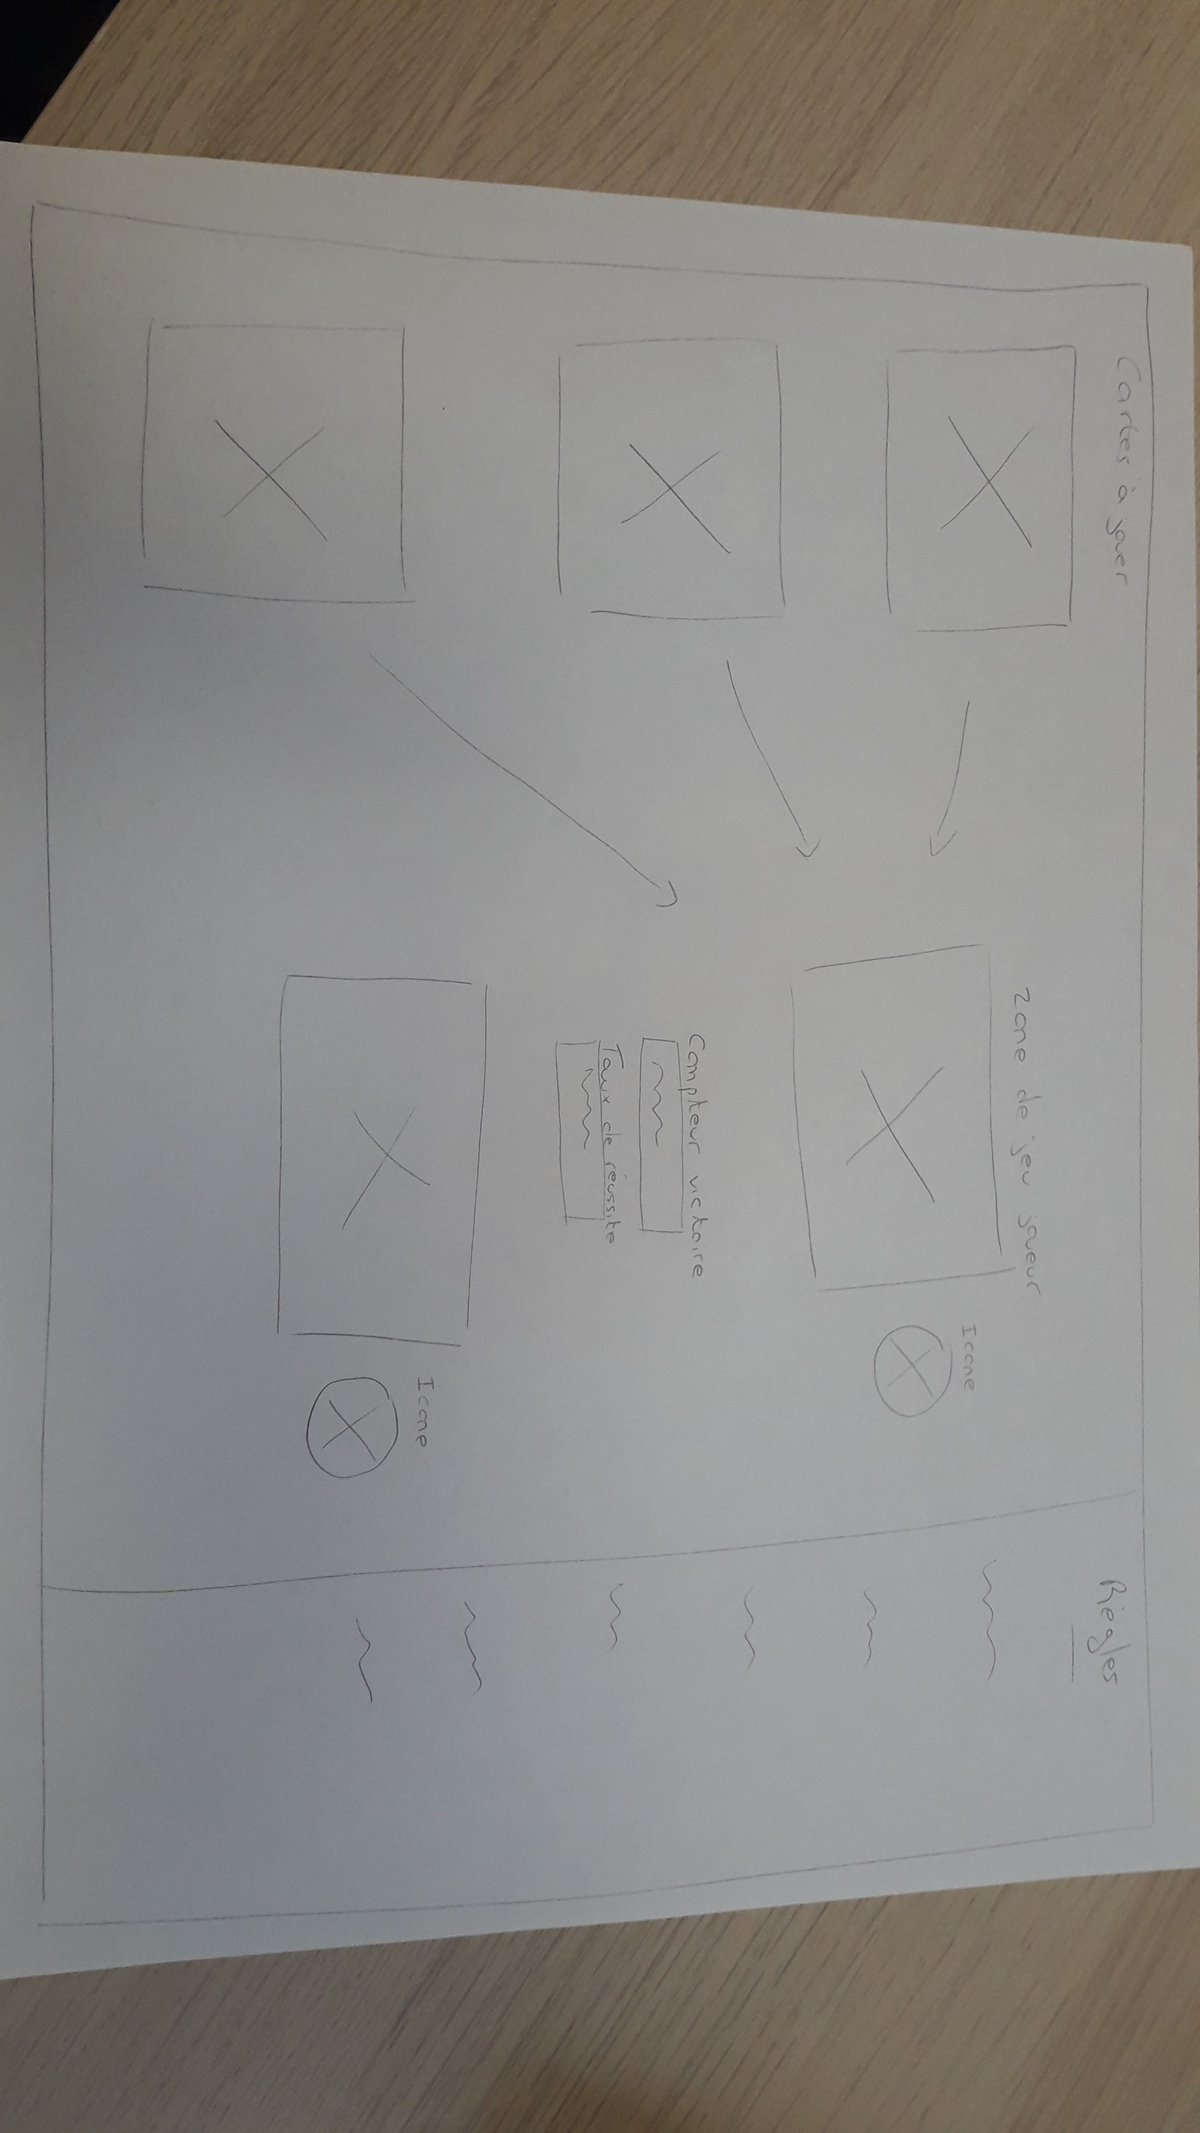 Cartes à jouer
Zone de jeu joueur
Icone
Compteur victoire
Taux de réussite
Icone
Règles